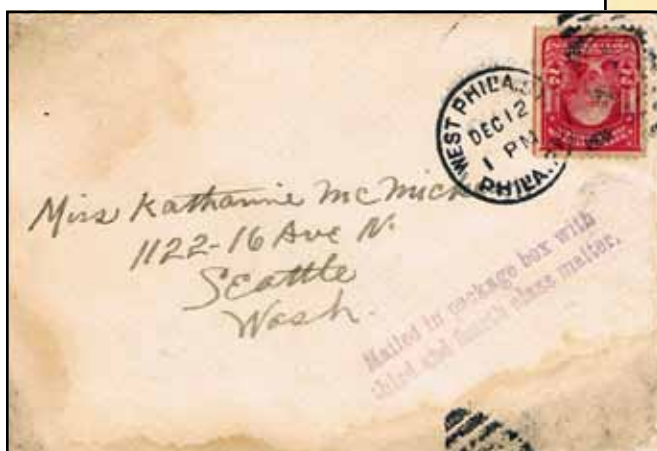 WEST PHILA.
DEC 12
1 PM
PHILA.
Miss Katharine McMick
1122-16 Ave N.
Seattle
Wash.
Mailed in package box with
third and fourth class matter.